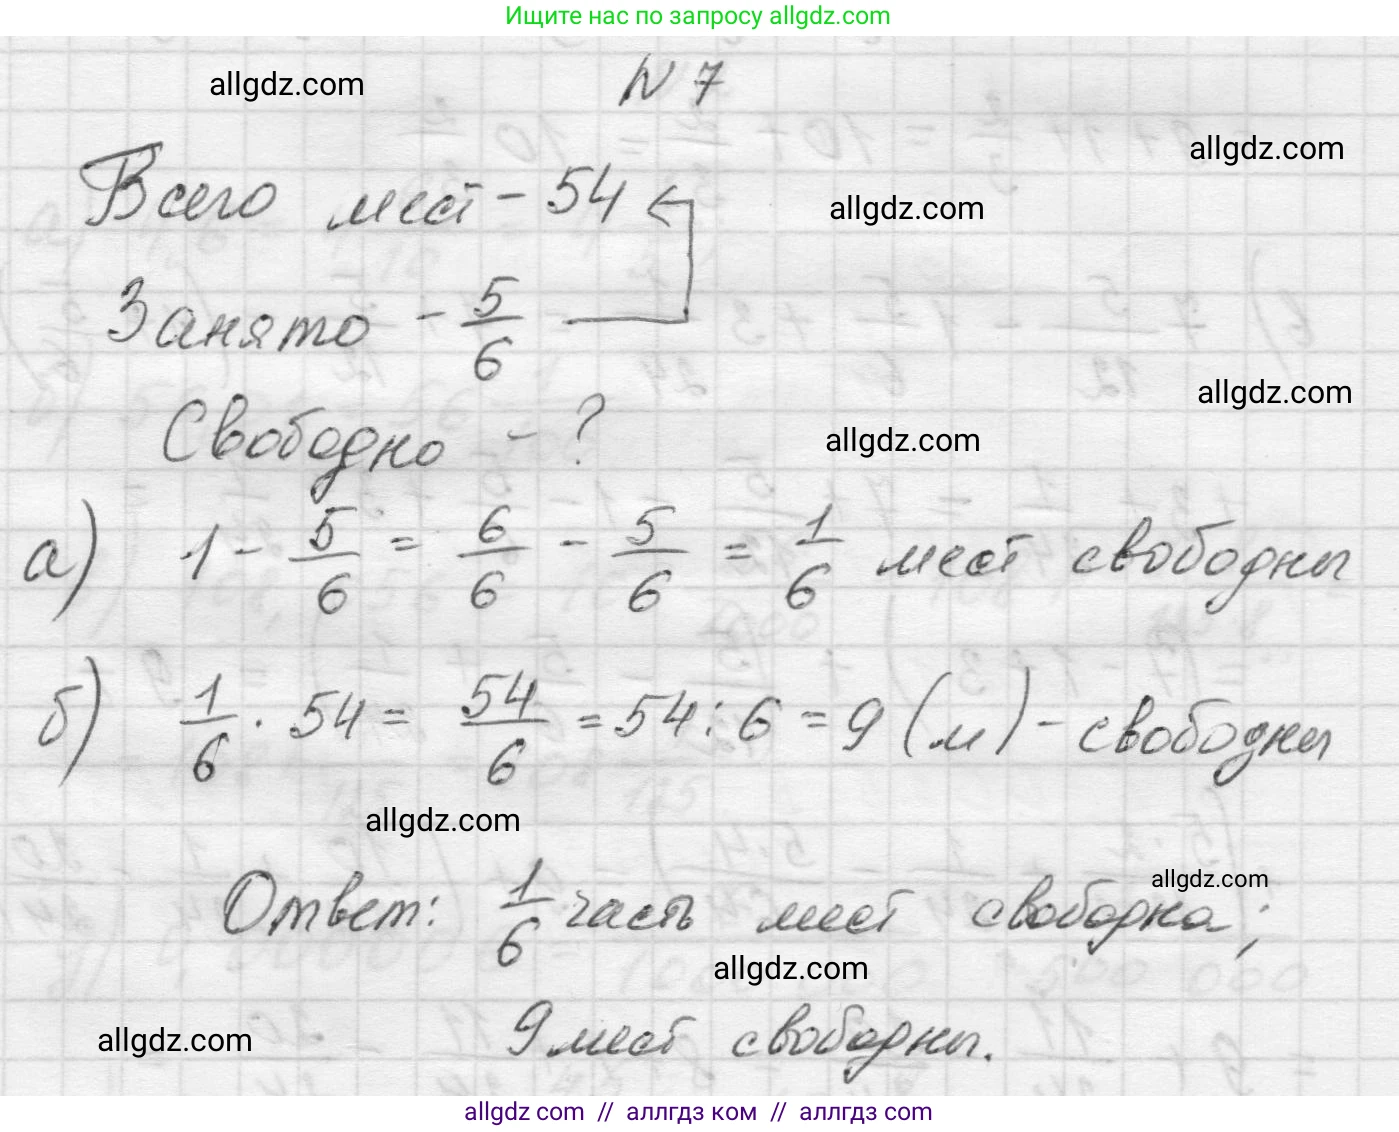 Ищите нас по запросу allgdz.com
allgdz.com
N 7
allgdz.com
Всего мест - 54
allgdz.com
Занято - 5/6
allgdz.com
Свободно - ?
allgdz.com
а) 1 - 5/6 = 6/6 - 5/6 = 1/6 мест свободны
б) 1/6 · 54 = 54/6 = 54 : 6 = 9 (м) - свободны
allgdz.com
allgdz.com
Ответ: 1/6 часть мест свободна;
allgdz.com
9 мест свободны.
allgdz.com
allgdz com // аллгдз ком // allgdz com